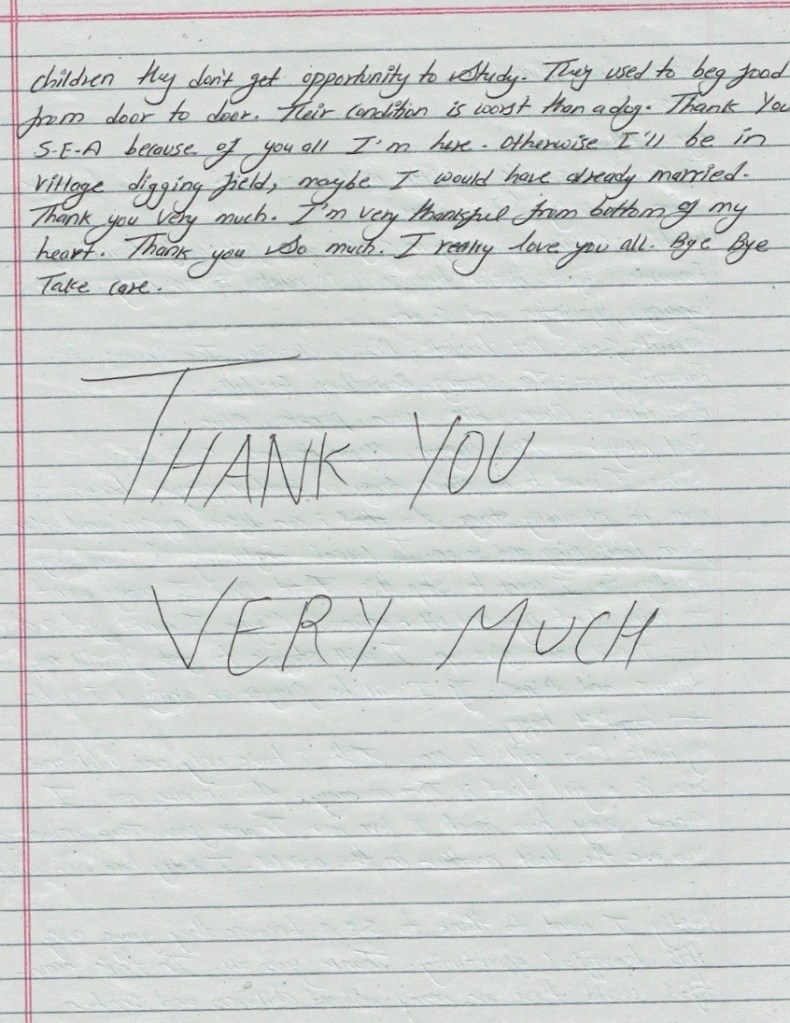 children they don't get opportunity to study. They used to beg food
from door to door. Their condition is worst than a dog. Thank You
S-E-A because of you all I'm here. Otherwise I'll be in
village digging field, maybe I would have already married.
Thank you very much. I'm very thankful from bottom of my
heart. Thank you so much. I really love you all. Bye Bye
Take care.
THANK YOU
VERY MUCH